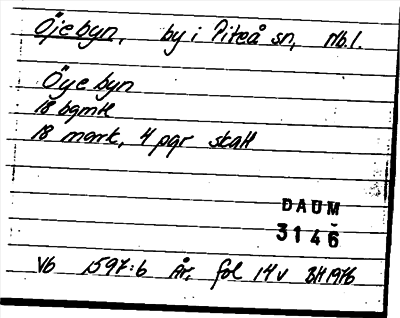 Öjebyn, by i Piteå sn, Nb.l.
Öye byn
18 bgmk
18 mark, 4 pgr skatt
DAUM
3146
Vb 1597:6 År, fol 14v BH 1976